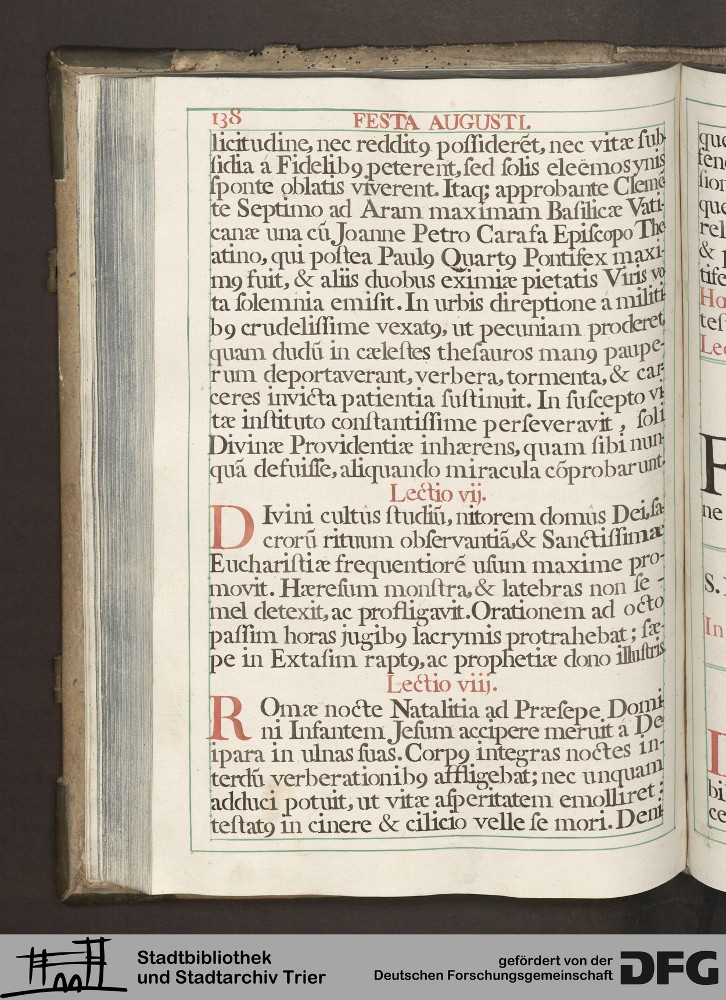 138 FESTA AUGUSTI.
licitudine, nec reddit9 poſſiderēt, nec vitæ ſub-
ſidia á Fidelib9 peterent, ſed ſolis eleëmosynis
ſponte oblatis viverent. Itaq; approbante Clemē
te Septimo ad Aram maximam Baſilicæ Vati-
canæ una cū Joanne Petro Carafa Epiſcopo The
atino, qui poſtea Paul9 Quart9 Pontifex maxi-
m9 fuit, & aliis duobus eximiæ pietatis Viris vo
ta ſolemnia emiſit. In urbis direptione á militi
b9 crudeliſſime vexat9, ut pecuniam proderet,
quam dudū in cæleſtes theſauros man9 paupe-
rum deportaverant, verbera, tormenta, & car-
ceres invicta patientia ſuſtinuit. In ſuſcepto vi
tæ inſtituto conſtantiſſime perſeveravit, ſoli
Divinæ Providentiæ inhærens, quam ſibi nun-
quā defuiſſe, aliquando miracula cōprobarunt.
Lectio vij.
DIvini cultûs ſtudiū, nitorem domûs Dei, ſa-
crorū rituum obſervantiā, & Sanctiſſimæ
Euchariſtiæ frequentiorē uſum maxime pro-
movit. Hæreſum monſtra, & latebras non ſe-
mel detexit, ac profligavit. Orationem ad octo
paſſim horas jugib9 lacrymis protrahebat; ſæ-
pe in Extaſim rapt9, ac prophetiæ dono illuſtris.
Lectio viij.
ROmæ nocte Natalitia ad Præſepe Domi
ni Infantem Jeſum accipere meruit á De
ipara in ulnas ſuas. Corp9 integras noctes in-
terdū verberationib9 affligebat; nec unquam
adduci potuit, ut vitæ aſperitatem emolliret;
teſtat9 in cinere & cilicio velle ſe mori. Deni-
que
ne
S.
In
bi
ce
Stadtbibliothek
und Stadtarchiv Trier
gefördert von der
Deutschen Forschungsgemeinschaft
DFG